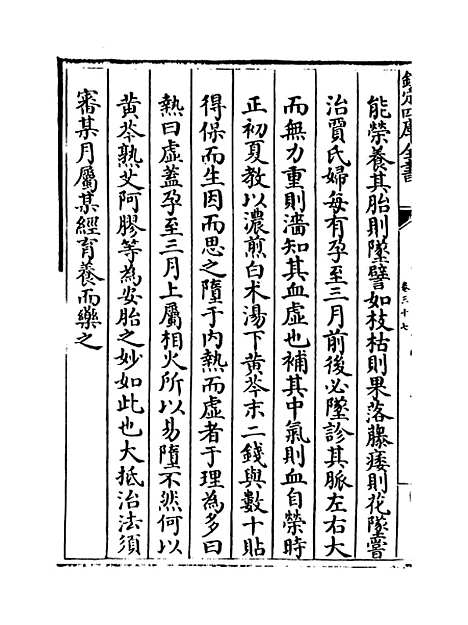 欽定四庫全書
卷三十七
能榮養其胎則墜譬如枝枯則果落藤痿則花墜嘗
治賈氏婦每有孕至三月前後必墜診其脈左右大
而無力重則濇知其血虛也補其中氣則血自榮時
正初夏教以濃煎白术湯下黄芩末二錢與數十貼
得保而生因而思之墮于内熱而虛者于理為多曰
熱曰虛蓋孕至三月上屬相火所以易墮不然何以
黄芩熟艾阿膠等為安胎之妙如此也大抵治法須
審某月屬某經育養而藥之